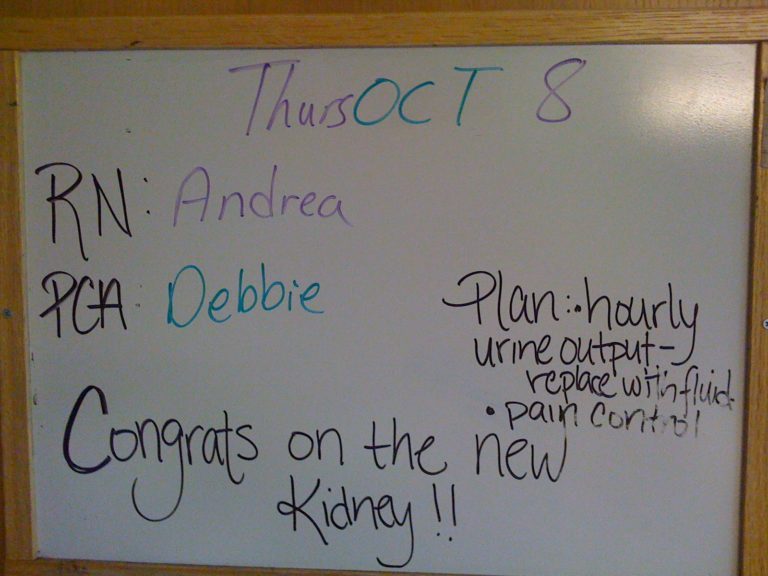 Thurs OCT 8
RN: Andrea
PCA: Debbie
Plan: • hourly
urine output -
replace with fluid
• pain control
Congrats on the new
Kidney !!